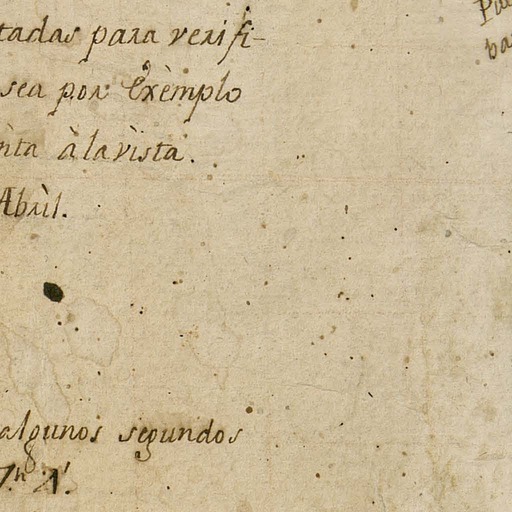 tadas para verifi-
sea por Exèmplo
nta à la vista.
Abril.
algunos segundos
7.h 1'.
Pa
ba